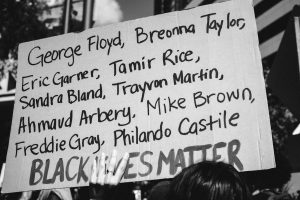 George Floyd, Breonna Taylor,
Eric Garner, Tamir Rice,
Sandra Bland, Trayvon Martin,
Ahmaud Arbery, Mike Brown,
Freddie Gray, Philando Castile
BLACK LIVES MATTER